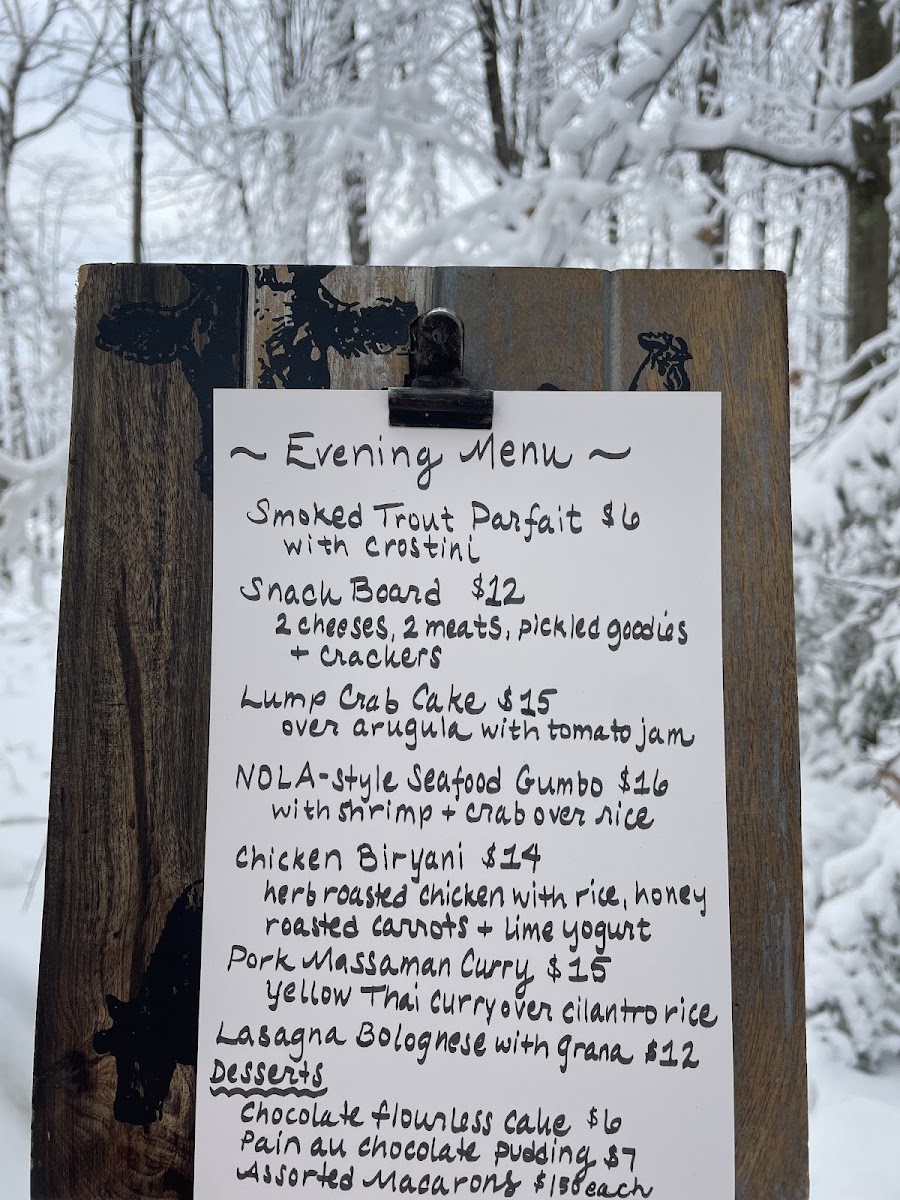 ~ Evening Menu ~
Smoked Trout Parfait $6
with crostini
Snack Board $12
2 cheeses, 2 meats, pickled goodies
+ crackers
Lump Crab Cake $15
over arugula with tomato jam
NOLA-style Seafood Gumbo $16
with shrimp + crab over rice
Chicken Biryani $14
herb roasted chicken with rice, honey
roasted carrots + lime yogurt
Pork Massaman Curry $15
yellow Thai curry over cilantro rice
Lasagna Bolognese with grana $12
Desserts
Chocolate flourless cake $6
Pain au chocolate pudding $7
Assorted Macarons $1.50 each